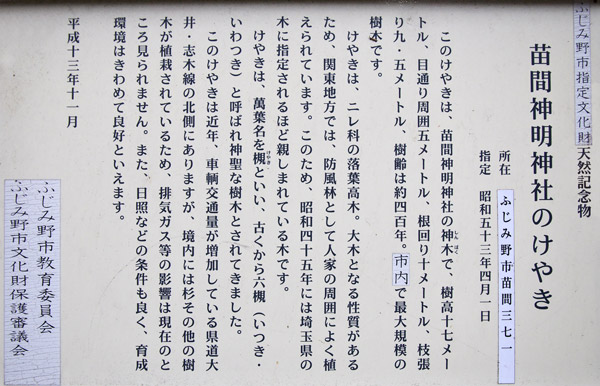 ふじみ野市指定文化財 天然記念物
苗間神明神社のけやき
所在 ふじみ野市苗間三七一
指定 昭和五十三年四月一日
このけやきは、苗間神明神社の神木で、樹高十七メー
トル、目通り周囲五メートル、根回り十メートル、枝張
り九・五メートル、樹齢は約四百年。市内で最大規模の
樹木です。
けやきは、ニレ科の落葉高木。大木となる性質がある
ため、関東地方では、防風林として人家の周囲によく植
えられています。このため、昭和四十五年には埼玉県の
木に指定されるほど親しまれている木です。
けやきは、萬葉名を槻といい、古くから六槻(いつき・
いわつき)と呼ばれ神聖な樹木とされてきました。
このけやきは近年、車輌交通量が増加している県道大
井・志木線の北側にありますが、境内には杉その他の樹
木が植栽されているため、排気ガス等の影響は現在のと
ころ見られません。また、日照などの条件も良く、育成
環境はきわめて良好といえます。
平成十三年十一月
ふじみ野市教育委員会
ふじみ野市文化財保護審議会